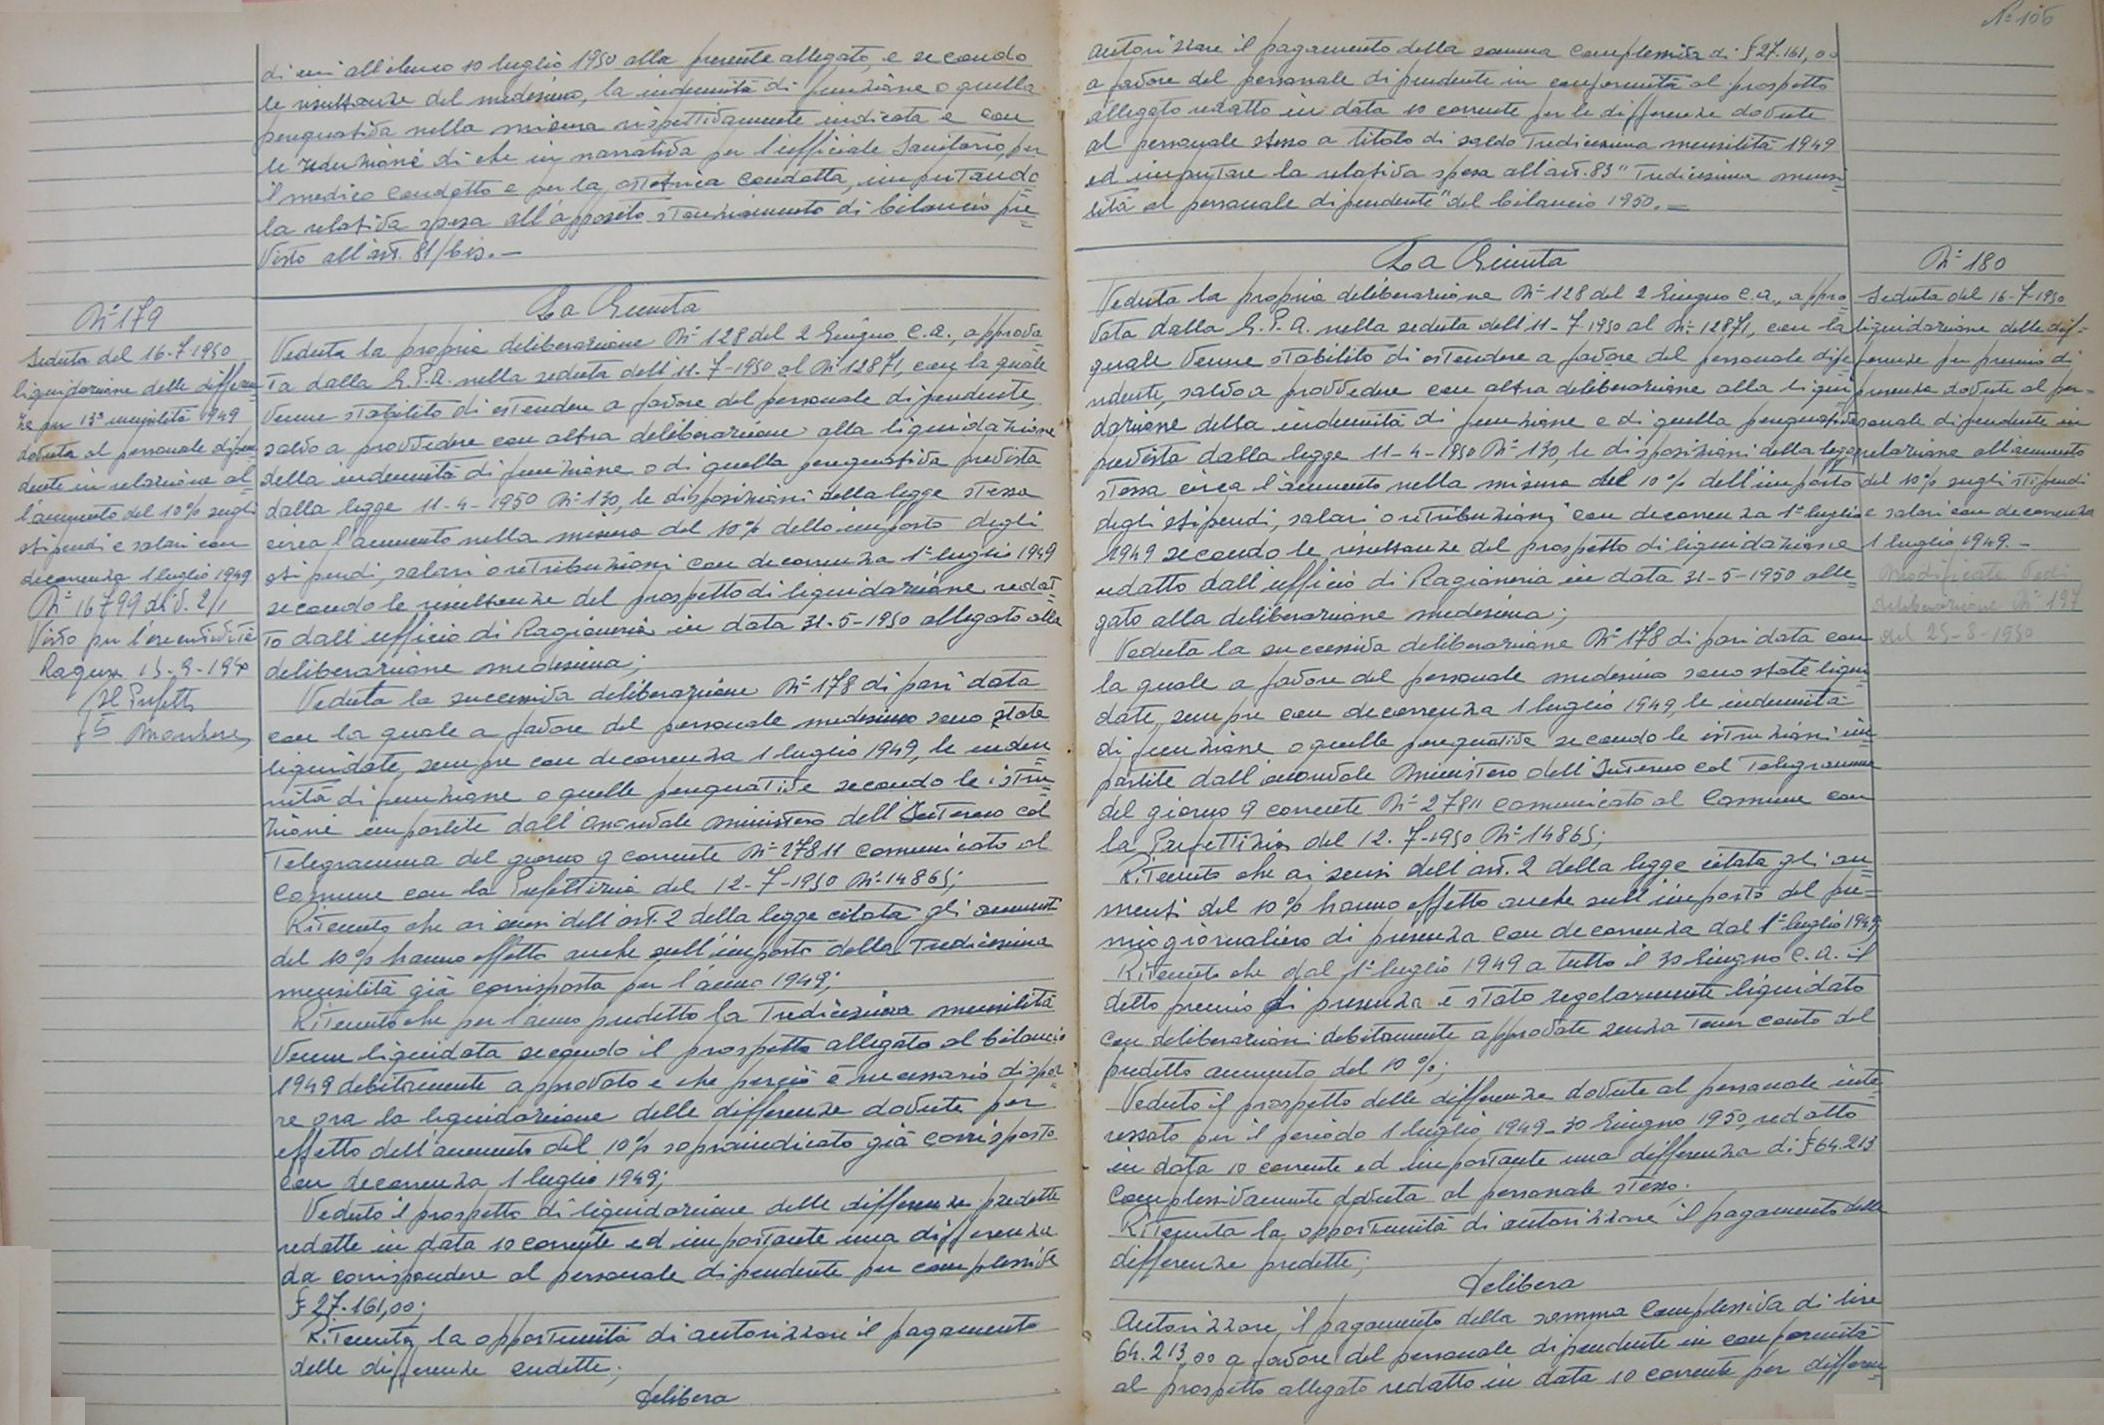 di cui all'elenco 10 luglio 1950 alla presente allegato, e secondo
le risultanze del medesimo, la indennità di funzione o quella
perequativa nella misura rispettivamente indicata e con
le riduzioni di che in narrativa per l'ufficiale Sanitario, per
il medico condotto e per la ostetrica condotta, imputando
la relativa spesa all'apposito stanziamento di bilancio pre=
visto all'art. 81/bis.—
N° 179
Seduta del 16-7-1950
liquidazione delle differen
ze per 13ª mensilità 1949
dovuta al personale dipen
dente in relazione al=
l'aumento del 10% sugli
stipendi e salari con
decorrenza 1 luglio 1949
N° 16799 div. 2/1
Visto per l'esecutività
Ragusa 15-9-1950
Il Prefetto
La Giunta
Veduta la propria deliberazione N° 128 del 2 Giugno c.a., approva
ta dalla G.P.A. nella seduta dell'11-7-1950 al N° 12871, con la quale
venne stabilito di estendere a favore del personale dipendente,
salvo a provvedere con altra deliberazione alla liquidazione
della indennità di funzione o di quella perequativa prevista
dalla legge 11-4-1950 N° 130, le disposizioni della legge stessa
circa l'aumento nella misura del 10% dello importo degli
stipendi, salari o retribuzioni con decorrenza 1° luglio 1949
secondo le risultanze del prospetto di liquidazione redat=
to dall'ufficio di Ragioneria in data 31-5-1950 allegato alla
deliberazione medesima;
Veduta la successiva deliberazione N° 178 di pari data
con la quale a favore del personale medesimo sono state
liquidate, sempre con decorrenza 1 luglio 1949, le inden
nità di funzione o quelle perequative secondo le istru=
zioni impartite dall'onorevole Ministero dell'Interno col
Telegramma del giorno 9 corrente N° 27811 comunicato al
Comune con la Prefettizia del 12-7-1950 N° 14865;
Ritenuto che ai sensi dell'art. 2 della legge citata gli aumenti
del 10% hanno effetto anche sull'importo della Tredicesima
mensilità già corrisposta per l'anno 1949;
Ritenuto che per l'anno predetto la Tredicesima mensilità
venne liquidata secondo il prospetto allegato al bilancio
1949 debitamente approvato e che perciò è necessario dispor=
re ora la liquidazione delle differenze dovute per
effetto dell'aumento del 10% sopraindicato già corrisposto
con decorrenza 1 luglio 1949;
Veduto il prospetto di liquidazione delle differenze predette
redatte in data 10 corrente ed importante una differenza
da corrispondere al personale dipendente per complessive
£ 27.161,00;
Ritenuta la opportunità di autorizzare il pagamento
delle differenze cudette;
Delibera
N° 106
autorizzare il pagamento della somma complessiva di £ 27.161,00
a favore del personale dipendente in conformità al prospetto
allegato redatto in data 10 corrente per le differenze dovute
al personale stesso a titolo di saldo Tredicesima mensilità 1949
ed imputare la relativa spesa all'art. 83 "Tredicesima mensi=
lità al personale dipendente" del bilancio 1950.=
La Giunta
Veduta la propria deliberazione N° 128 del 2 Giugno c.a., appro=
vata dalla G.P.A. nella seduta dell'11-7-1950 al N° 12871, con la
quale venne stabilito di estendere a favore del personale dipe
ndente, salvo a provvedere con altra deliberazione alla liqui
dazione della indennità di funzione e di quella perequativa
prevista dalla legge 11-4-1950 N° 130, le disposizioni della legge
stessa circa l'aumento nella misura del 10% dell'importo
degli stipendi, salari o retribuzioni con decorrenza 1° luglio
1949 secondo le risultanze del prospetto di liquidazione
redatto dall'ufficio di Ragioneria in data 31-5-1950 alle=
gato alla deliberazione medesima;
Veduta la successiva deliberazione N° 178 di pari data con
la quale a favore del personale medesimo sono state liqui
date, sempre con decorrenza 1 luglio 1949, le indennità
di funzione o quelle perequative secondo le istruzioni im=
partite dall'onorevole Ministero dell'Interno col Telegramma
del giorno 9 corrente N° 27811 comunicato al Comune con
la Prefettizia del 12-7-1950 N° 14865;
Ritenuto che ai sensi dell'art. 2 della legge citata gli au=
menti del 10% hanno effetto anche sull'importo del pre=
mio giornaliero di presenza con decorrenza dal 1° luglio 1949;
Ritenuto che dal 1° luglio 1949 a tutto il 30 Giugno c.a. il
detto premio di presenza è stato regolarmente liquidato
con deliberazioni debitamente approvate senza tener conto del
predetto aumento del 10%;
Veduto il prospetto delle differenze dovute al personale inte=
ressato per il periodo 1 luglio 1949 - 30 Giugno 1950, redatto
in data 10 corrente ed importante una differenza di £ 64.213
complessivamente dovuta al personale stesso.
Ritenuta la opportunità di autorizzare il pagamento delle
differenze predette;
Delibera
Autorizzare il pagamento della somma complessiva di lire
64.213,00 a favore del personale dipendente in conformità
al prospetto allegato redatto in data 10 corrente per differen=
N° 180
Seduta del 16-7-1950
liquidazione delle dif=
ferenze per premio di
presenza dovute al per=
sonale dipendente in
relazione all'aumento
del 10% sugli stipendi
e salari con decorrenza
1 luglio 1949.—
Modificata Vedi
deliberazione N° 197
del 25-8-1950